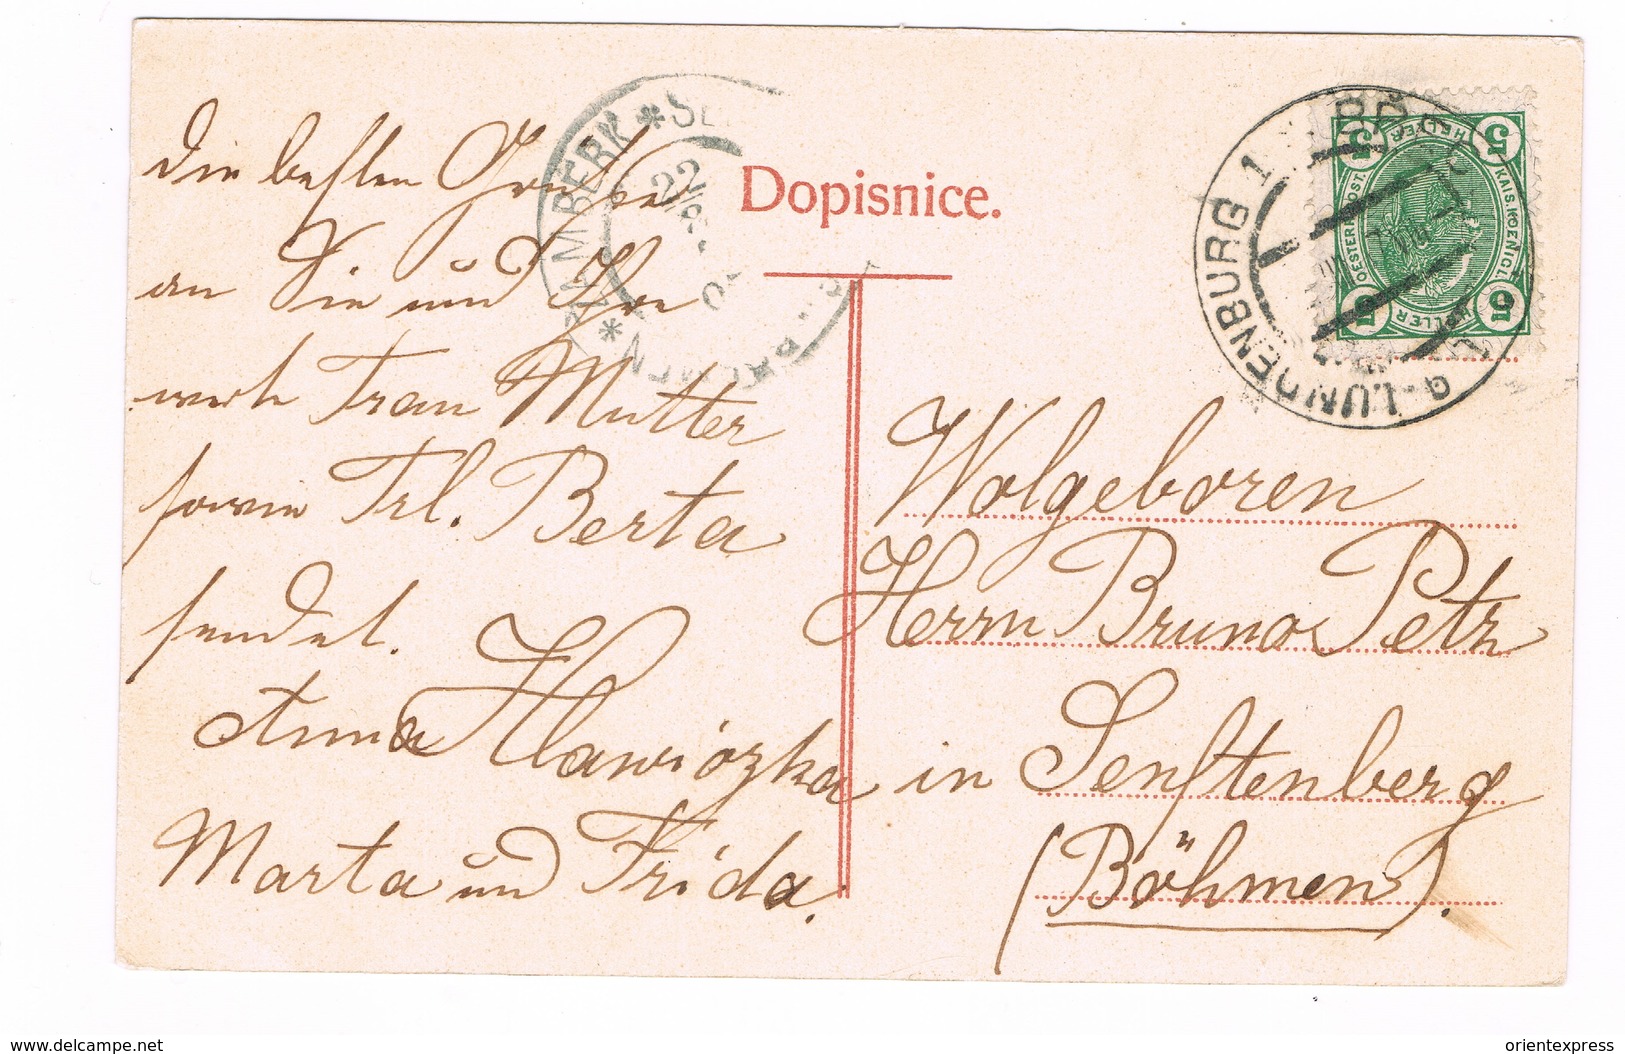 Die besten Grüße
an Sie und Ihre
werte Frau Mutter
sowie Frl. Berta
sendet.
Anna Hawiczka
Marta und Frida.
Dopisnice.
ŽAMBERK * SE
22
LUNDENBURG 1
5 HELLER 5
KAIS. KOENIGL.
OESTERR. POST.
5 HELLER 5
Wolgeboren
Herrn Bruno Petr
in Senftenberg
(Böhmen).
www.delcampe.net
orientexpress